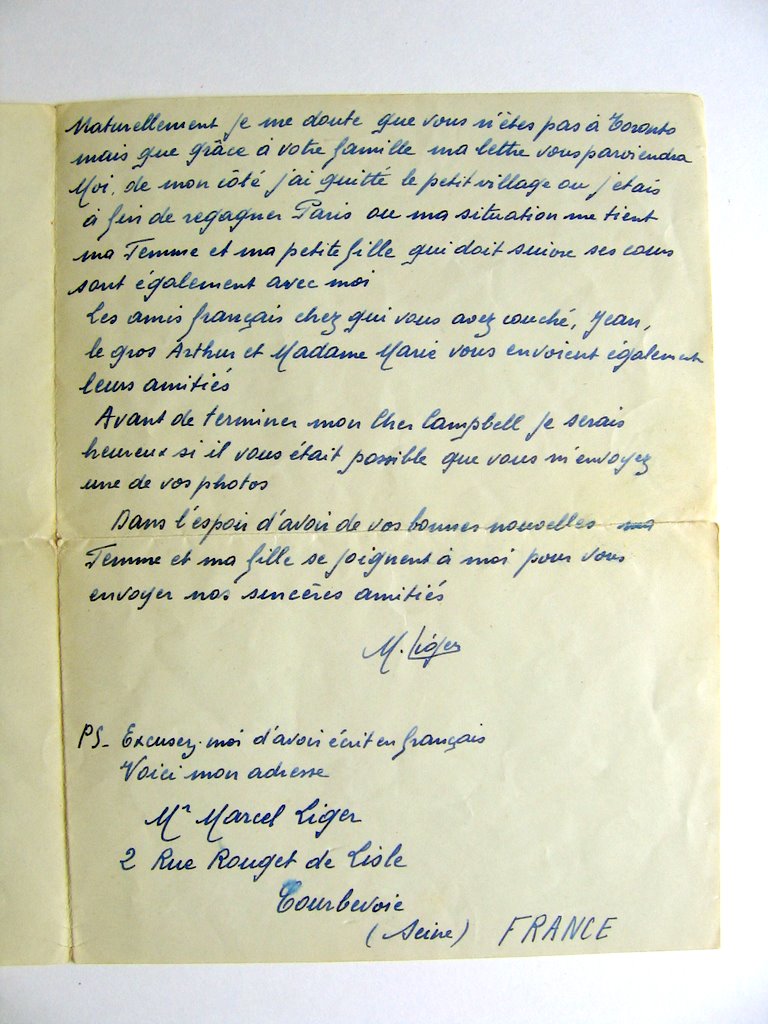 Naturellement je me doute que vous n'êtes pas à Toronto
mais que grâce à votre famille ma lettre vous parviendra
Moi, de mon côté j'ai quitté le petit village ou j'étais
à fin de regagner Paris ou ma situation me tient
ma Femme et ma petite fille qui doit suivre ses cours
sont également avec moi
Les amis français chez qui vous avez couché, Jean,
le gros Arthur et Madame Marie vous envoient également
leurs amitiés
Avant de terminer mon Cher Campbell je serais
heureux si il vous était possible que vous m'envoyez
une de vos photos
Dans l'espoir d'avoir de vos bonnes nouvelles ma
Femme et ma fille se joignent à moi pour vous
envoyer nos sincères amitiés
M. Liger
PS- Excusez-moi d'avoir écrit en français
Voici mon adresse
Mr Marcel Liger
2 Rue Rouget de Lisle
Courbevoie
(Seine) FRANCE